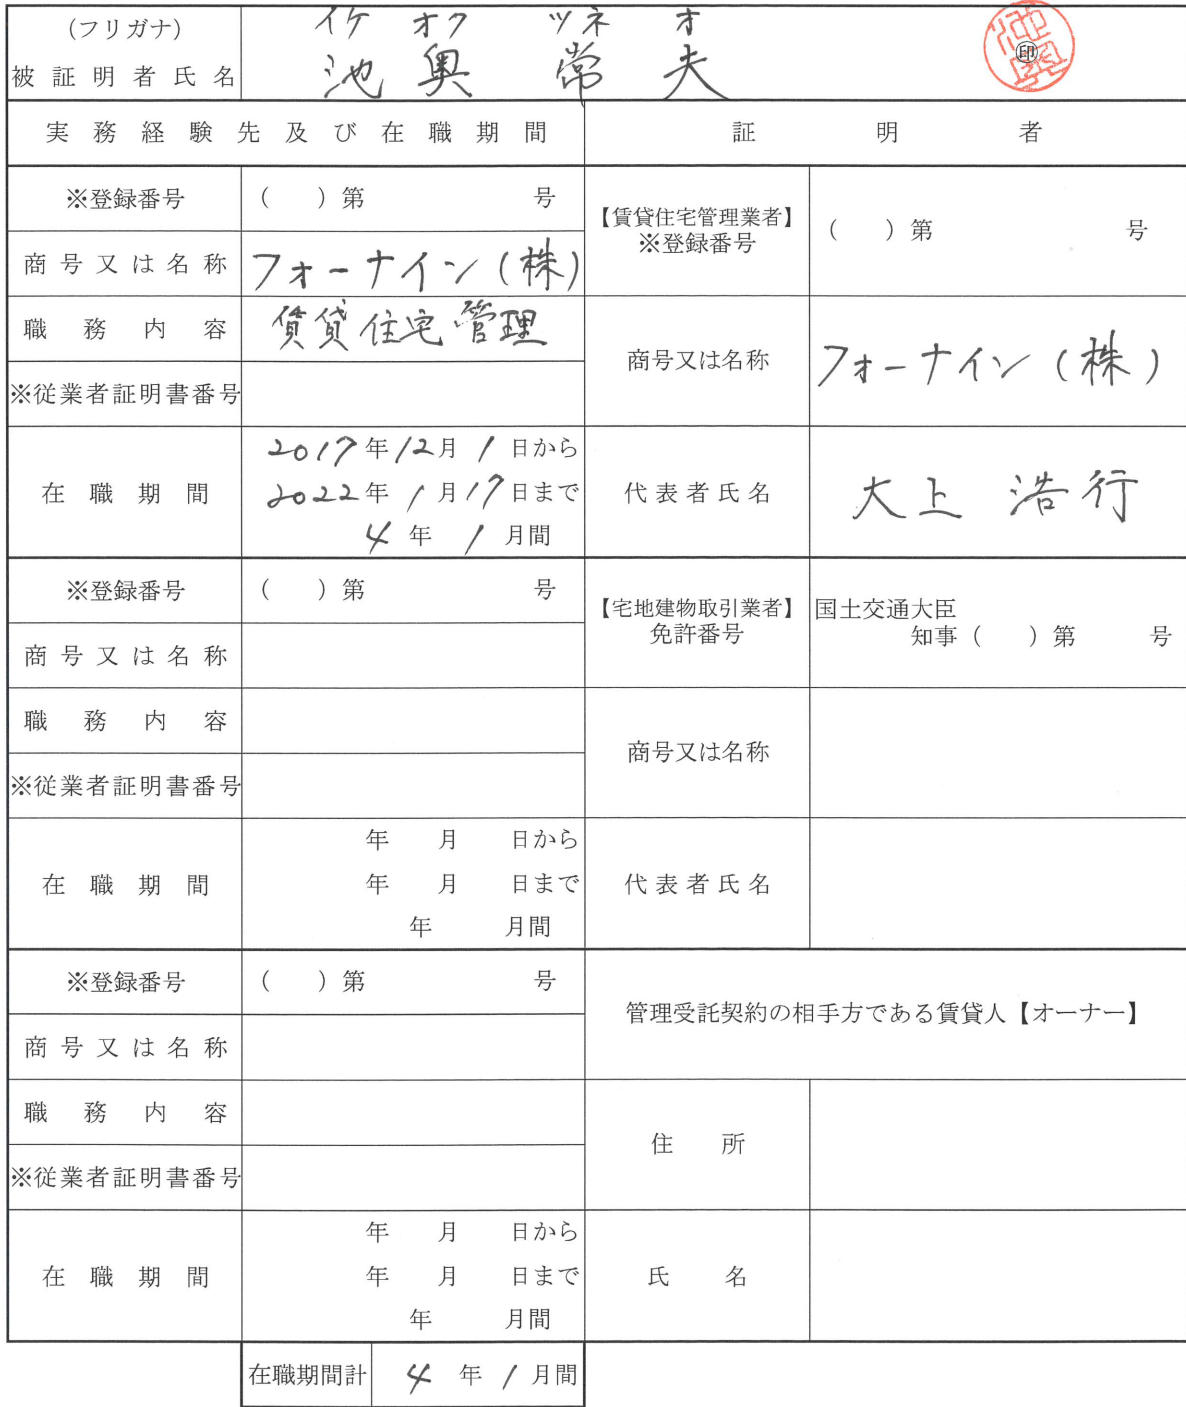 (フリガナ) イケ オク ツネ オ
被証明者氏名 池奥 常夫 ㊞ 池奥
実務経験先及び在職期間 証明者
※登録番号 ( )第 号 【賃貸住宅管理業者】 ※登録番号 ( )第 号
商号又は名称 フォーナイン(株)
職務内容 賃貸住宅管理 商号又は名称 フォーナイン(株)
※従業者証明書番号
在職期間 2017年12月1日から
2022年1月17日まで 代表者氏名 大上 浩行
4年1月間
※登録番号 ( )第 号 【宅地建物取引業者】 免許番号 国土交通大臣
知事( )第 号
商号又は名称
職務内容 商号又は名称
※従業者証明書番号
在職期間 年 月 日から
年 月 日まで 代表者氏名
年 月間
※登録番号 ( )第 号 管理受託契約の相手方である賃貸人【オーナー】
商号又は名称
職務内容 住所
※従業者証明書番号
在職期間 年 月 日から
年 月 日まで 氏名
年 月間
在職期間計 4年1月間